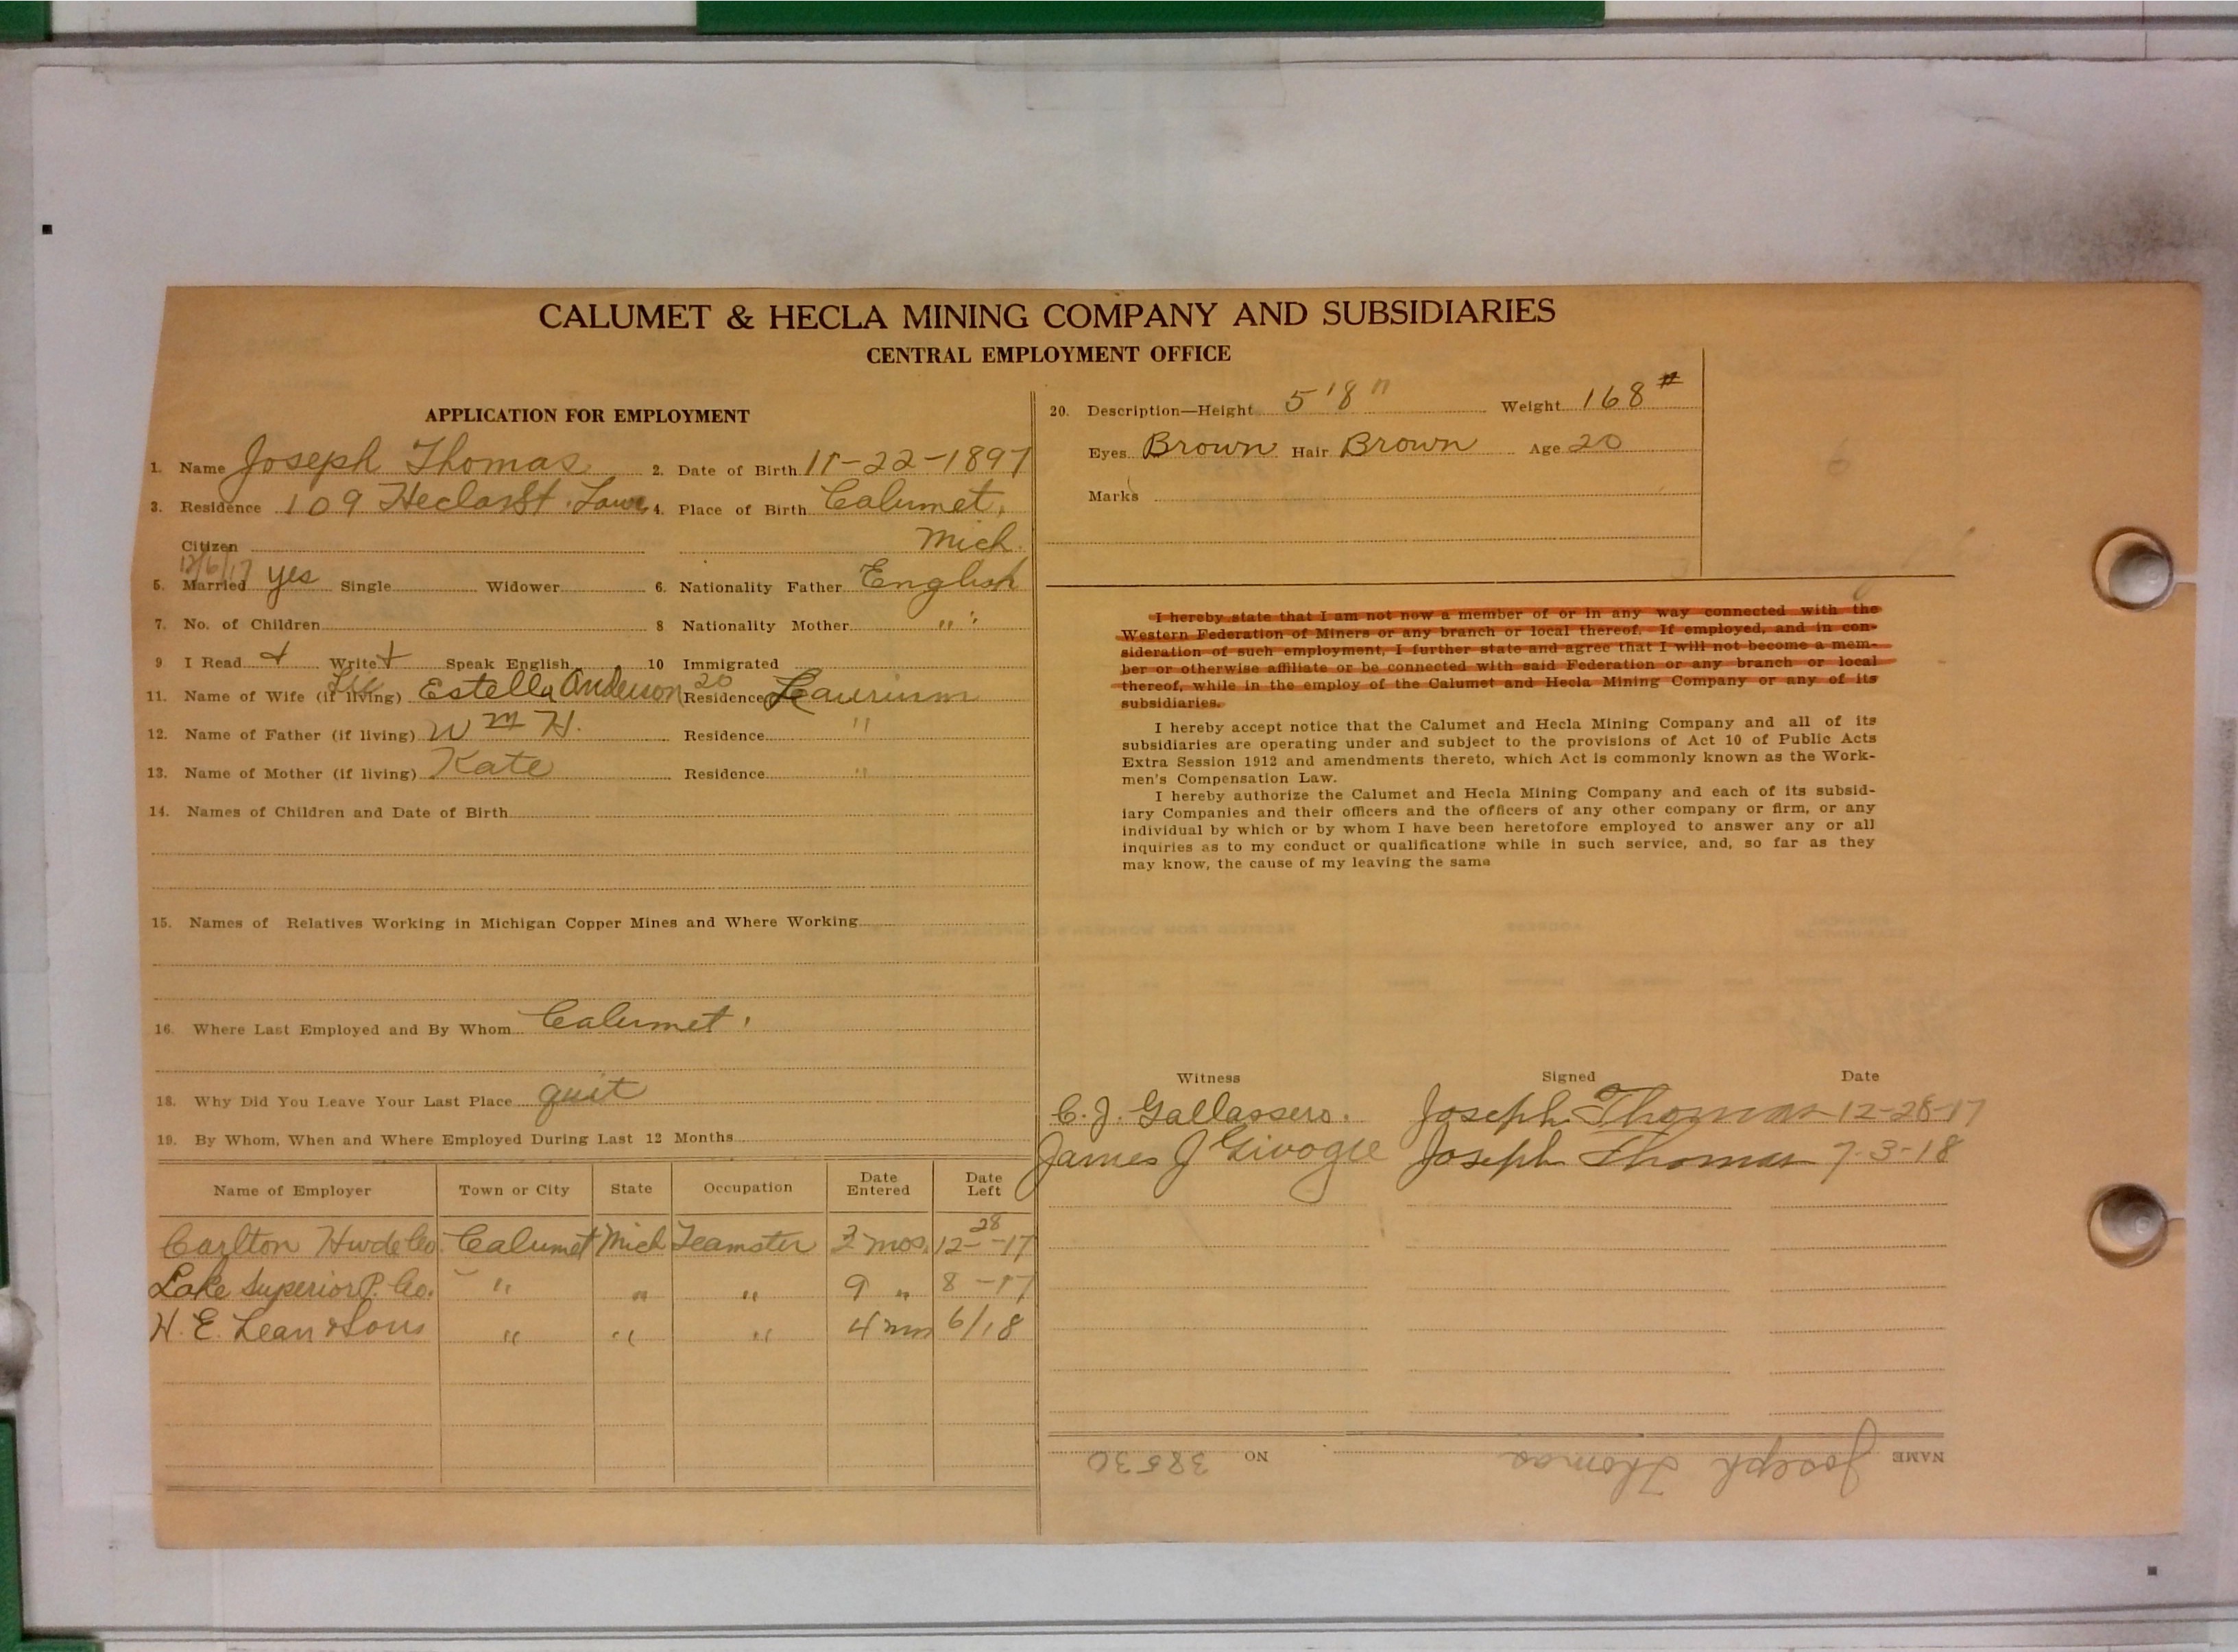 CALUMET & HECLA MINING COMPANY AND SUBSIDIARIES
CENTRAL EMPLOYMENT OFFICE
APPLICATION FOR EMPLOYMENT
1. Name Joseph Thomas 2. Date of Birth 11-22-1897
3. Residence 109 Hecla St. Laur. 4. Place of Birth Calumet,
Citizen Mich.
12/6/17
5. Married yes Single Widower 6. Nationality Father English
7. No. of Children 8 Nationality Mother " "
9 I Read + Write + Speak English 10 Immigrated
11. Name of Wife (if living) Estella Anderson 20 Residence Laurium
12. Name of Father (if living) Wm H. Residence "
13. Name of Mother (if living) Kate Residence "
14. Names of Children and Date of Birth
15. Names of Relatives Working in Michigan Copper Mines and Where Working
16. Where Last Employed and By Whom Calumet
18. Why Did You Leave Your Last Place quit
19. By Whom, When and Where Employed During Last 12 Months
Name of Employer Town or City State Occupation Date Entered Date Left
Carlton Hwde Co. Calumet Mich Teamster 3 mos. 12-28-17
Lake Superior P. Co. " " " 9 " 8-17
H. E. Lean & Sons " " " 4 mos 6/18
20. Description—Height 5'8" Weight 168#
Eyes Brown Hair Brown Age 20
Marks
I hereby state that I am not now a member of or in any way connected with the
Western Federation of Miners or any branch or local thereof. If employed, and in con-
sideration of such employment, I further state and agree that I will not become a mem-
ber or otherwise affiliate or be connected with said Federation or any branch or local
thereof, while in the employ of the Calumet and Hecla Mining Company or any of its
subsidiaries.
I hereby accept notice that the Calumet and Hecla Mining Company and all of its
subsidiaries are operating under and subject to the provisions of Act 10 of Public Acts
Extra Session 1912 and amendments thereto, which Act is commonly known as the Work-
men's Compensation Law.
I hereby authorize the Calumet and Hecla Mining Company and each of its subsid-
iary Companies and their officers and the officers of any other company or firm, or any
individual by which or by whom I have been heretofore employed to answer any or all
inquiries as to my conduct or qualifications while in such service, and, so far as they
may know, the cause of my leaving the same
Witness Signed Date
C. J. Gallassero. Joseph Thomas 12-28-17
James J Givogre Joseph Thomas 7-3-18
NAME Joseph Thomas NO 38530